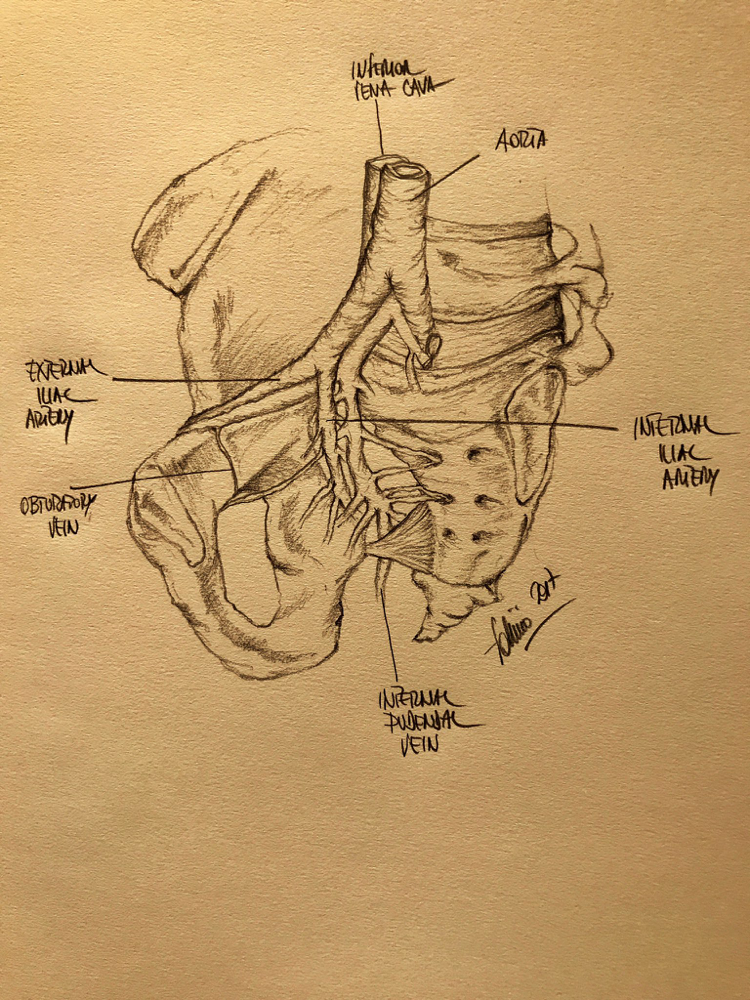 INFERIOR
VENA CAVA
AORTA
EXTERNAL
ILIAC
ARTERY
INTERNAL
ILIAC
ARTERY
OBTURATORY
VEIN
2017
INTERNAL
PUDENDAL
VEIN